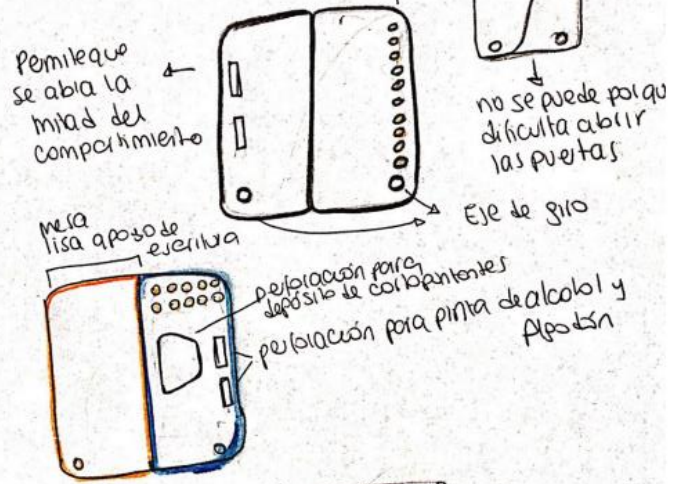 Permite que
se abra la
mitad del
compartimiento
no se puede porqu
dificulta abrir
las puertas
Eje de giro
mesa
lisa apoyo de
escritura
perforación para
depósito de cortopunzantes
perforación para pinta de alcohol y
Algodón